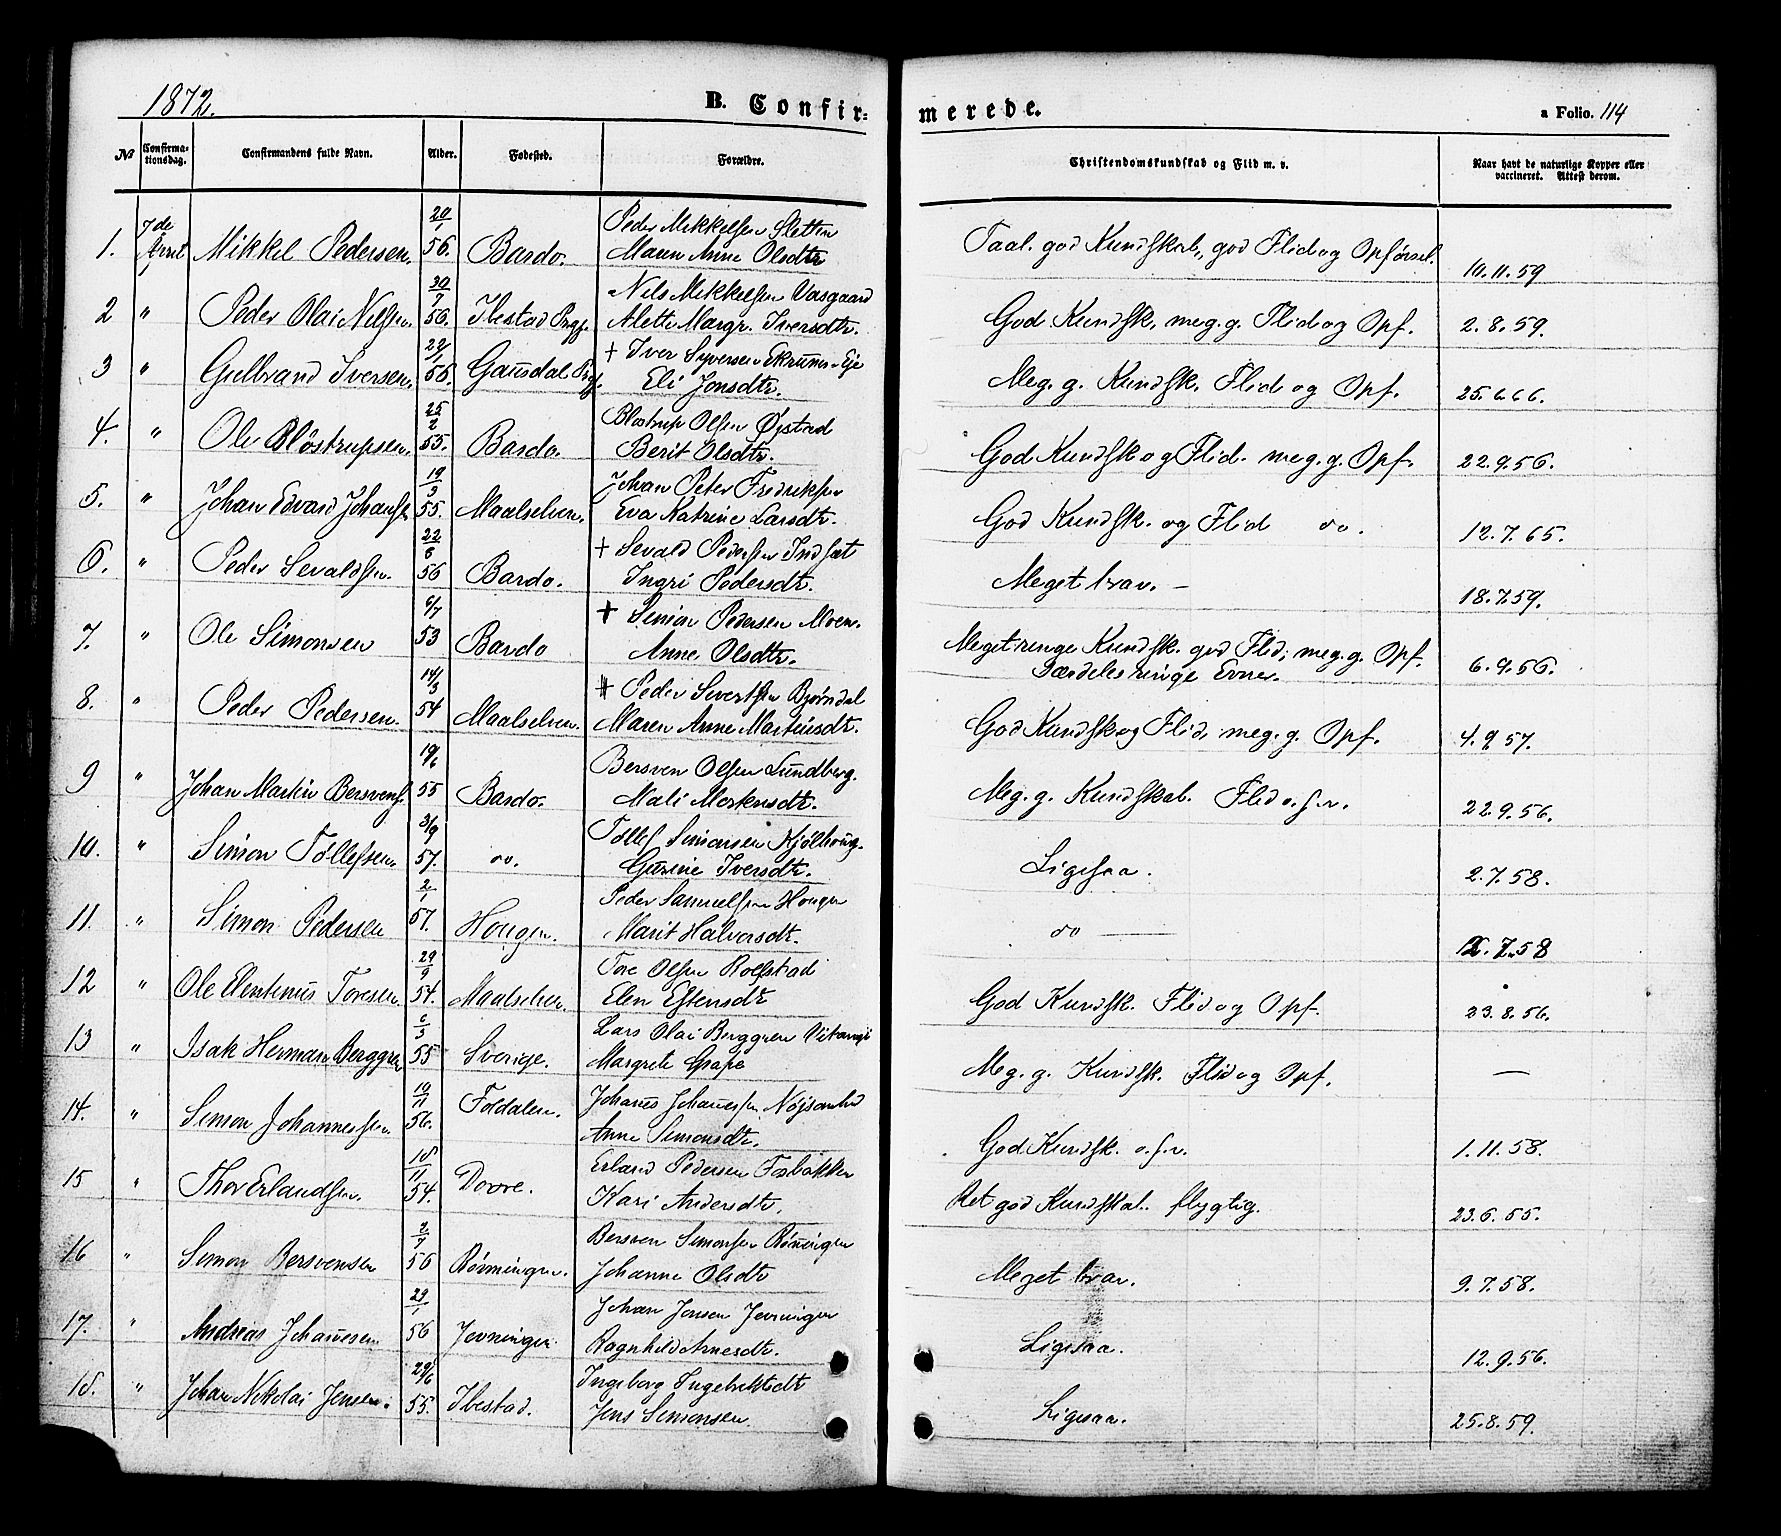 1872.
B. Confir: merede.
a Folio. 114
№ Confirma-tionsdag. Confirmandens fulde Navn. Alder. Fødested. Forældre. Christendomskundskab og Flid m. v. Naar havt de naturlige Kopper eller vaccineret. Attest derom.
1. 7de April Mikkel Pedersen. 20/1 56. Bardo. Peder Mikkelsen Sletten
Maren Anne Olsdtr Taal. god Kundskab, god Flid og Opførsel. 10.11.59
2 " Peder Olai Nilsen. 20/7 56. Ibestad Prgj. Nils Mikkelsen Vasgaard
Alette Margr. Iversdtr. God Kundsk, meg. g. Flid og Opf. 2.8.59.
3 " Gulbrand Iversen. 29/1 56. Gausdal Prgj. + Iver Syversen Ekrums Eje
Eli Jonsdtr. Meg. g. Kundsk. Flid og Opf. 25.6.66.
4. " Ole Bløstrupsen. 25/2 55. Bardo. Bløstrup Olsen Øystad
Berit Olsdtr. God Kundsk og Flid. meg. g. Opf. 22.9.56.
5. " Johan Edvard Johansen 19/3 55. Maalselven. Johan Peter Fredriksen
Eva Katrine Larsdtr. God Kundsk. og Flid do. 12.7.65.
6. " Peder Sevaldsen. 22/6 56 Bardo. + Sevald Pedersen Indset
Ingri Pedersdtr. Meget brav. — 18.7.59.
7. " Ole Simonsen 6/7 53 Bardo + Simon Pedersen Moen.
Anne Olsdtr. Meget ringe Kundsk. god Flid, meg. g. Opf.
Særdeles ringe Evner. 6.9.56.
8. " Peder Pedersen. 14/3 54 Maalselven. + Peder Sivertsen Bjørndal
Maren Anne Martinsdtr. God Kundsk og Flid, meg. g. Opf. 4.9.57.
9 " Johan Martin Bersvens. 19/6 55 Bardo. Bersven Olsen Lundberg.
Mali Mortensdtr. Meg. g. Kundskab. Flid o.s.v. 22.9.56.
10. " Simon Tollefsen 3/9 57. do. Tollef Simonsen Kjølhoug.
Gurine Iversdtr. Ligesaa. 2.7.58.
11. " Simon Pedersen 2/1 57. Hougen. Peder Samuelsen Hougen
Marit Halvorsdtr. do — .7.58
12 " Ole Elentinus Toresen. 29/9 54. Maalselven. Tore Olsen Rolfstad
Elen Estensdtr God Kundsk. Flid og Opf. 23.8.56.
13 " Isak Herman Berggren 6/3 55 Sverige. Lars Olai Berggren
Margrete Grape Meg. g. Kundsk. Flid og Opf. —
14. " Simon Johannessen. 19/11 56. Foldalen. Johanes Johanessen Nøjsomhed
Anne Simonsdtr. God Kundsk. o.s.v. 1.11.58.
15 " Thor Erlandsen. 18/11 54. Dovre. Erland Pedersen Fosbakken
Kari Andersdtr. Ret god Kundskab. flygtig. 23.6.55.
16 " Simon Bersvensen 2/7 56 Rønningen. Bersven Simonsen Rønningen
Johanne Olsdtr Meget brav. 9.7.58.
17. " Andreas Johanesen 29/1 56 Jevningen. Johan Jonsen Jevningen
Ragnhild Arnesdtr. Ligesaa. 12.9.56.
18. " Johan Nikolai Jensen. 29/6 55. Ibestad. Ingeborg Ingebriktsdtr
Jens Simonsen. Ligesaa. 25.8.59.